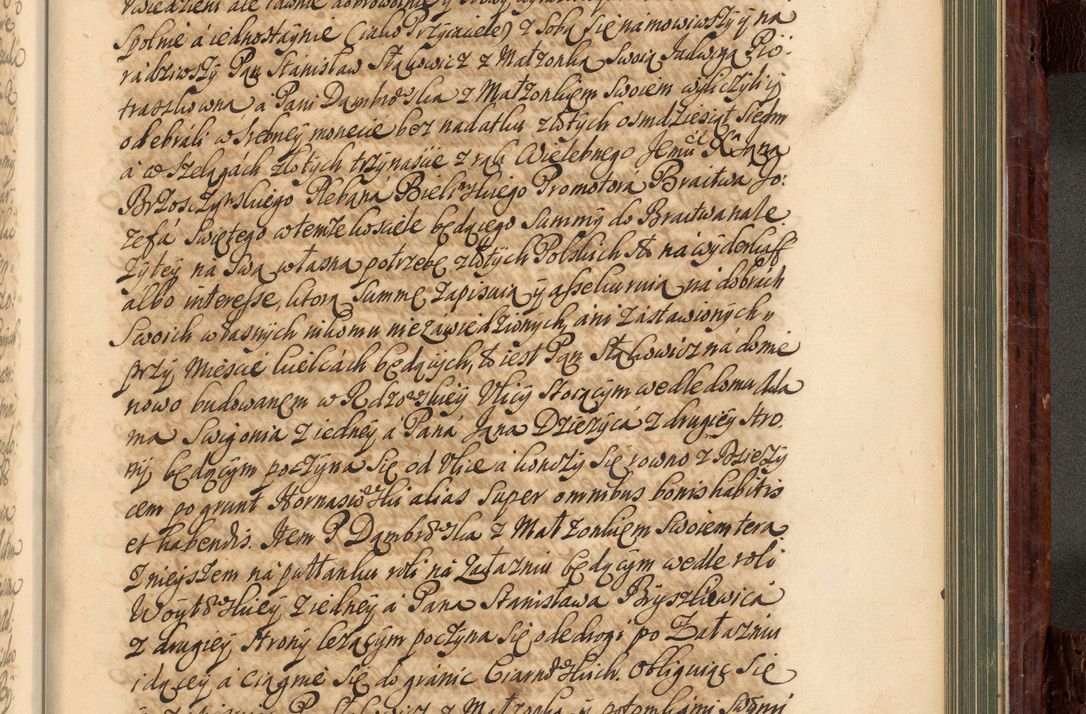 Spolnie á iednostáynie (iako Przyiaciele) z Sobą się namowiwszy y na
radziwszy Pan Stanisław Stąkowicz z Małzonką Swoią Jadwigą Pió-
traszkowną á Pani Dąmbrowska z Małzonkiem Swoiem wyliczyli y
odebráli w Srebney monecie bez nadatku złotych ośmdziesiąt Siedm
á w Szelągách złotych trzynaście z rąk Wielebnego Jemci Xiędza
Brzosczynskiego Plebana Bielinskiego Promotorá Bractwa Jo:
zefá Swiętego w temze kosciele będącego Summy do Bractwa nale
zytey na Swą własną potrzebę złotych Polskich 100 ná wyderkaff
albo interesse, ktorą Summę zapisuią y assekuruią ná dobrách
Swoich własnych nikomu niezáwiedzionych, áni zástawionych
przy Mieście Kielcách będących, to iest Pan Stąkowicz ná domie
nowo budowanem w Kdzowskiey Vlicy stoiącym wedle domu Ada
ma Swigonia z iedney á Pana Jana Dziezyca z drugiey stro
ny będącym poczyna się od Vlice á konczy się rowno z Dziezy
cem po grunt Hornasiwska alias Super omnibus bonis habitis
et habendis. Item P Dąmbrowska z Małzonkiem Swoiem tera
znieyszem na pułłanku roli ná Záłáźniu będącym wedle roli
Woytowskiey z iedney á Pana Stanisława Pryszkiewica
z drugiey Strony lezącym poczyna się od drogi po Załaźniu
idącey á ciągnie się do gránic Czarnowskich. Obliguiąc Się